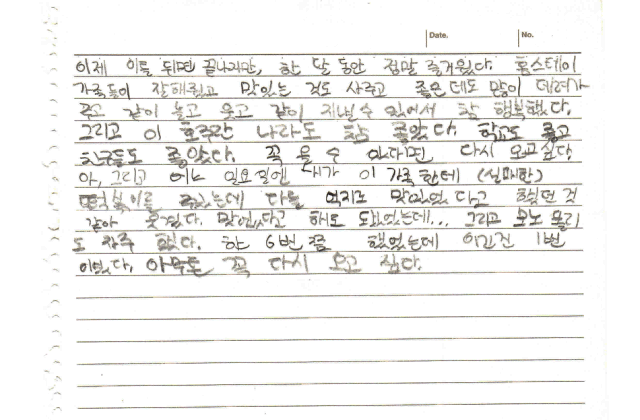 Date.
No.
이제 이틀 뒤면 끝나지만, 한 달 동안 정말 즐거웠다. 홈스테이
가족들이 잘해줬고 맛있는 것도 사주고 좋은 데도 많이 데려가
주고 같이 놀고 웃고 같이 지낼 수 있어서 참 행복했다.
그리고 이 호주란 나라도 참 좋았다. 학교도 좋고
친구들도 좋았다. 꼭 올 수 있다면 다시 오고 싶다.
아, 그리고 어느 일요일엔 내가 이 가족한테 (실패한)
떡볶이를 다들 맛있었다고 했던 것
같아 웃겼다. 맛없다고 해도 되는데... 그리고 모노폴리
도 자주 했다. 한 6번쯤 했었는데 이긴건 1번
이었다. 아무튼 꼭 다시 오고 싶다.